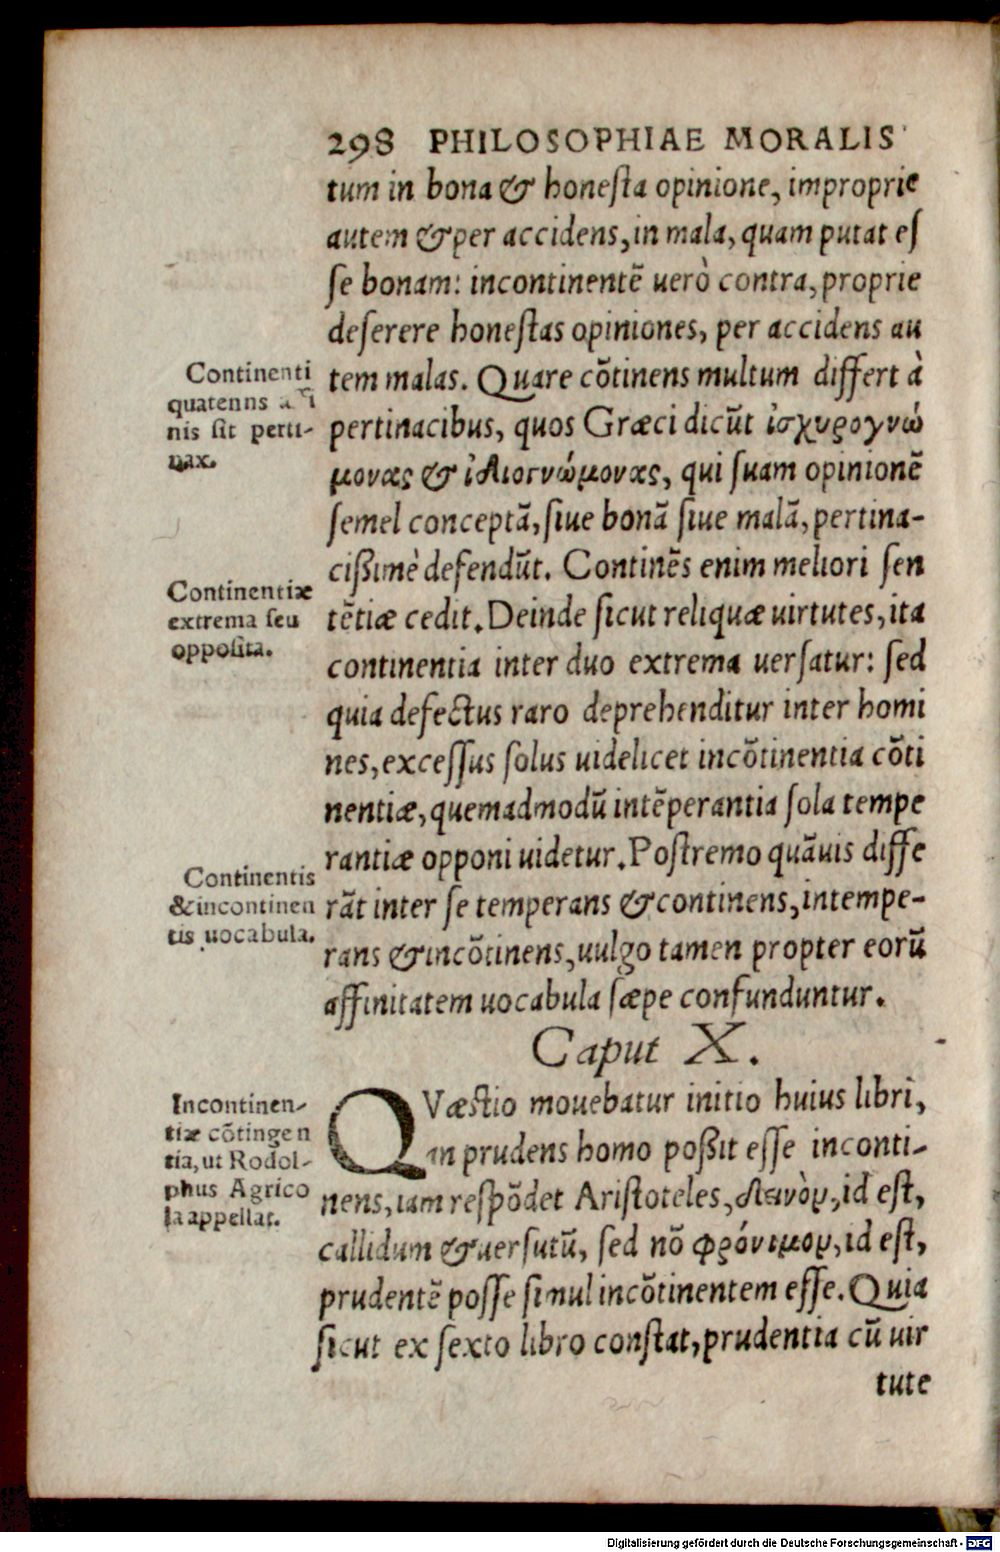 298 PHILOSOPHIAE MORALIS
tum in bona & honesta opinione, improprie
autem & per accidens, in mala, quam putat es
se bonam: incontinentẽ uerò contra, proprie
deserere honestas opiniones, per accidens au
tem malas. Quare cõtinens multum differt à
pertinacibus, quos Græci dicũt ἰσχυρογνώ
μονας & ἰδιογνώμονας, qui suam opinionẽ
semel conceptã, siue bonã siue malã, pertina-
cißimè defendũt. Continẽs enim meliori sen
tẽtiæ cedit. Deinde sicut reliquæ uirtutes, ita
continentia inter duo extrema uersatur: sed
quia defectus raro deprehenditur inter homi
nes, excessus solus uidelicet incõtinentia cõti
nentiæ, quemadmodũ intẽperantia sola tempe
rantiæ opponi uidetur. Postremo quãuis diffe
rãt inter se temperans & continens, intempe-
rans & incõtinens, uulgo tamen propter eorũ
affinitatem uocabula sæpe confunduntur.
Continenti
quatenns
nis sit perti-
nax.
Continentiæ
extrema seu
opposita.
Continentis
& incontinen
tis uocabula.
Caput X.
QVæstio mouebatur initio huius libri,
an prudens homo poßit esse inconti-
nens, iam respõdet Aristoteles, δεινὸν, id est,
callidum & uersutũ, sed nõ φρόνιμον, id est,
prudentẽ posse simul incõtinentem esse. Quia
sicut ex sexto libro constat, prudentia cũ uir
tute
Incontinen-
tiæ cõtingen
tia, ut Rodol-
phus Agrico
la appellat.
Digitalisierung gefördert durch die Deutsche Forschungsgemeinschaft - DFG